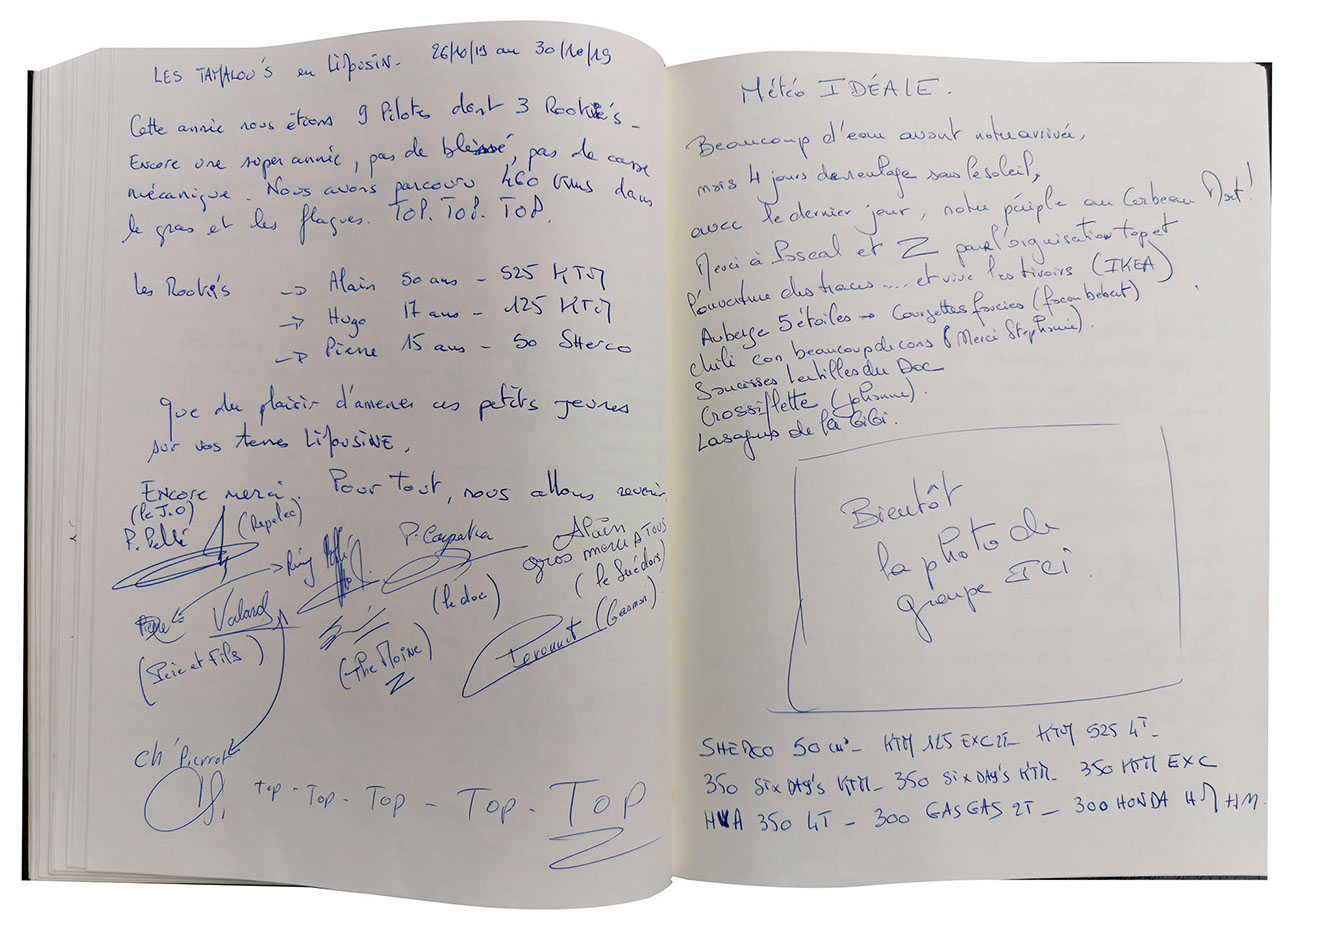 LES TAMALOU'S en LIMOUSIN. 26/10/19 au 30/10/19
Cette année nous étions 9 Pilotes dont 3 Rookie's -
Encore une super année, pas de blessé, pas de casse
mécanique. Nous avons parcouru 460 kms dans
le gras et les flaques. TOP. TOP. TOP.
Les Rookie's → Alain 50 ans - 525 KTM
→ Hugo 17 ans - 125 KTM
→ Pierre 15 ans - 50 Sherco
Que du plaisir d'amener ces petits jeunes
sur vos terres LIMOUSINE.
Encore merci. Pour tout, nous allons revenir
(le J.O) (Rapalec)
P. Pellé
P. Caypaha
Alain
gros merci A TOUS
(le Suédois)
(le doc)
Valard
(Père et Fils)
(The Moine)
(Gasmoi)
Ch' Pierrot
Top - Top - Top - Top - Top
Météo IDÉALE.
Beaucoup d'eau avant notre arrivée,
mais 4 jours de roulage sous le soleil,
avec le dernier jour, notre périple au Corbeau Mort !
Merci à Pascal et Z pour l'organisation top et
l'ouverture des traces .... et vive les tiroirs (IKEA)
Auberge 5 étoiles → Courgettes farcies (façon bébert)
chili con beaucoup de cons (Merci Stephanie).
Saucisses lentilles du Doc
Crossiflette (johanne).
Lasagnes de la GiGi.
Bientôt
la photo de
groupe ICI
SHERCO 50 cm³ - KTM 125 EXC 2T - KTM 525 4T -
350 Six DAY's KTM - 350 Six DAY's KTM - 350 KTM EXC
HVA 350 4T - 300 GASGAS 2T - 300 HONDA HM HM.